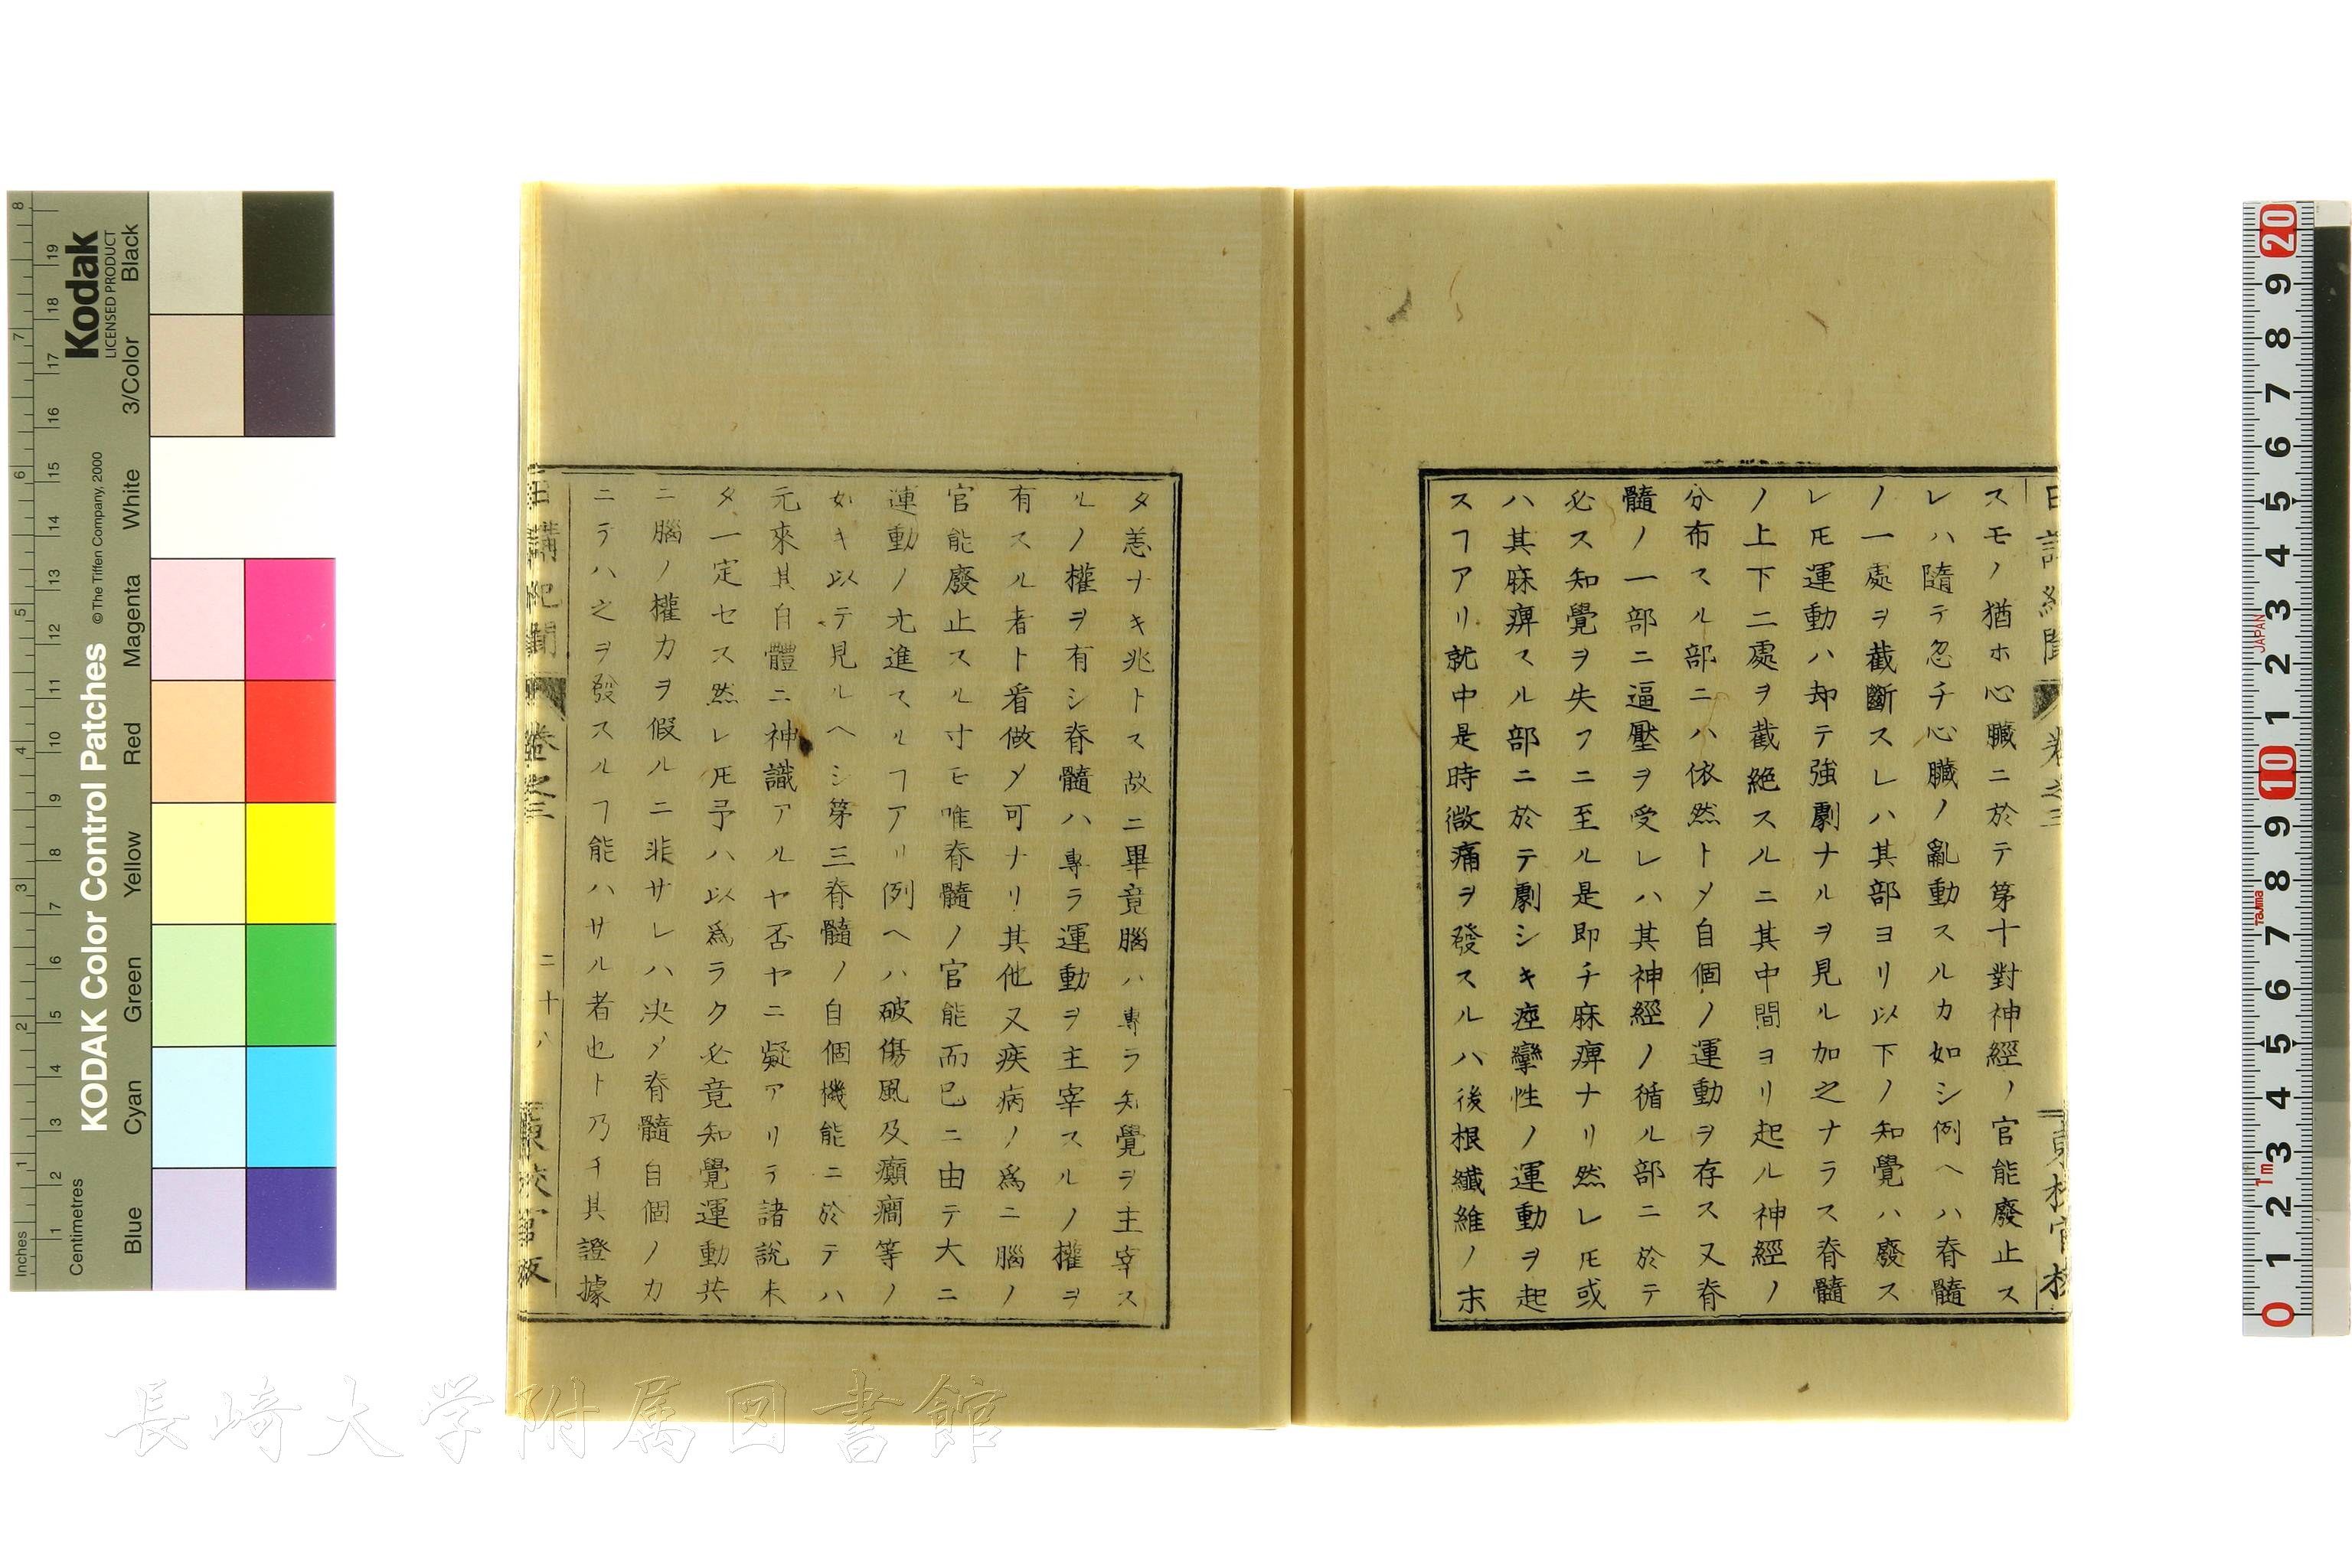 スモノ猶ホ心臓ニ於テ第十對神經ノ官能廢止ス
レハ隨テ忽チ心臓ノ亂動スルカ如シ例ヘハ脊髓
ノ一處ヲ截斷スレハ其部ヨリ以下ノ知覺ハ廢ス
レ𪜈運動ハ却テ強劇ナルヲ見ル加之ナラス脊髓
ノ上下二處ヲ截絶スルニ其中間ヨリ起ル神經ノ
分布スル部ニハ依然トメ自個ノ運動ヲ存ス又脊
髓ノ一部ニ逼壓ヲ受レハ其神經ノ循ル部ニ於テ
必ス知覺ヲ失フニ至ル是即チ麻痺ナリ然レ𪜈或
ハ其麻痺スル部ニ於テ劇シキ痙攣性ノ運動ヲ起
スヿアリ就中是時微痛ヲ發スルハ後根纖維ノ末
タ恙ナキ兆トス故ニ畢竟腦ハ專ラ知覺ヲ主宰ス
ルノ權ヲ有シ脊髓ハ專ラ運動ヲ主宰スルノ權ヲ
有スル者ト看做メ可ナリ其他又疾病ノ爲ニ腦ノ
官能廢止スル寸モ唯脊髓ノ官能而已ニ由テ大ニ
運動ノ亢進スルヿアリ例ヘハ破傷風及癲癇等ノ
如キ以テ見ルヘシ第三脊髓ノ自個機能ニ於テハ
元來其自體ニ神識アルヤ否ヤニ疑アリテ諸説未
タ一定セス然レ𪜈予ハ以爲ラク必竟知覺運動共
ニ腦ノ權力ヲ假ルニ非サレハ決メ脊髓自個ノ力
ニテハ之ヲ發スルヿ能ハサル者也ト乃チ其證據
日講紀聞
卷之三
二十八
Kodak
LICENSED PRODUCT
KODAK Color Control Patches
© The Tiffen Company, 2000
Inches
Centimetres
Blue
Cyan
Green
Yellow
Red
Magenta
White
3/Color
Black
1 2 3 4 5 6 7 8
1 2 3 4 5 6 7 8 9 10 11 12 13 14 15 16 17 18 19
20 9 8 7 6 5 4 3 2 1 10 9 8 7 6 5 4 3 2 1 0
JAPAN
Tajima
1m
長崎大学附属図書館